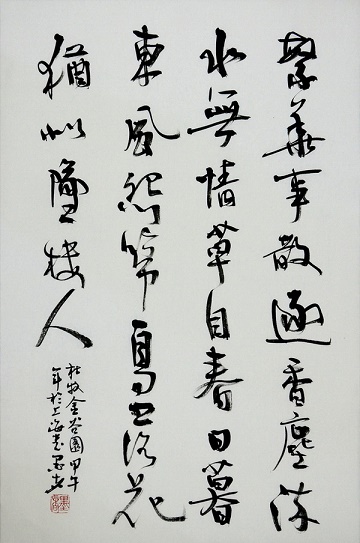 繁華事散逐香塵流
水無情草自春日暮
東風怨啼鳥落花
猶似墜樓人
杜牧金谷園甲午
年於上海